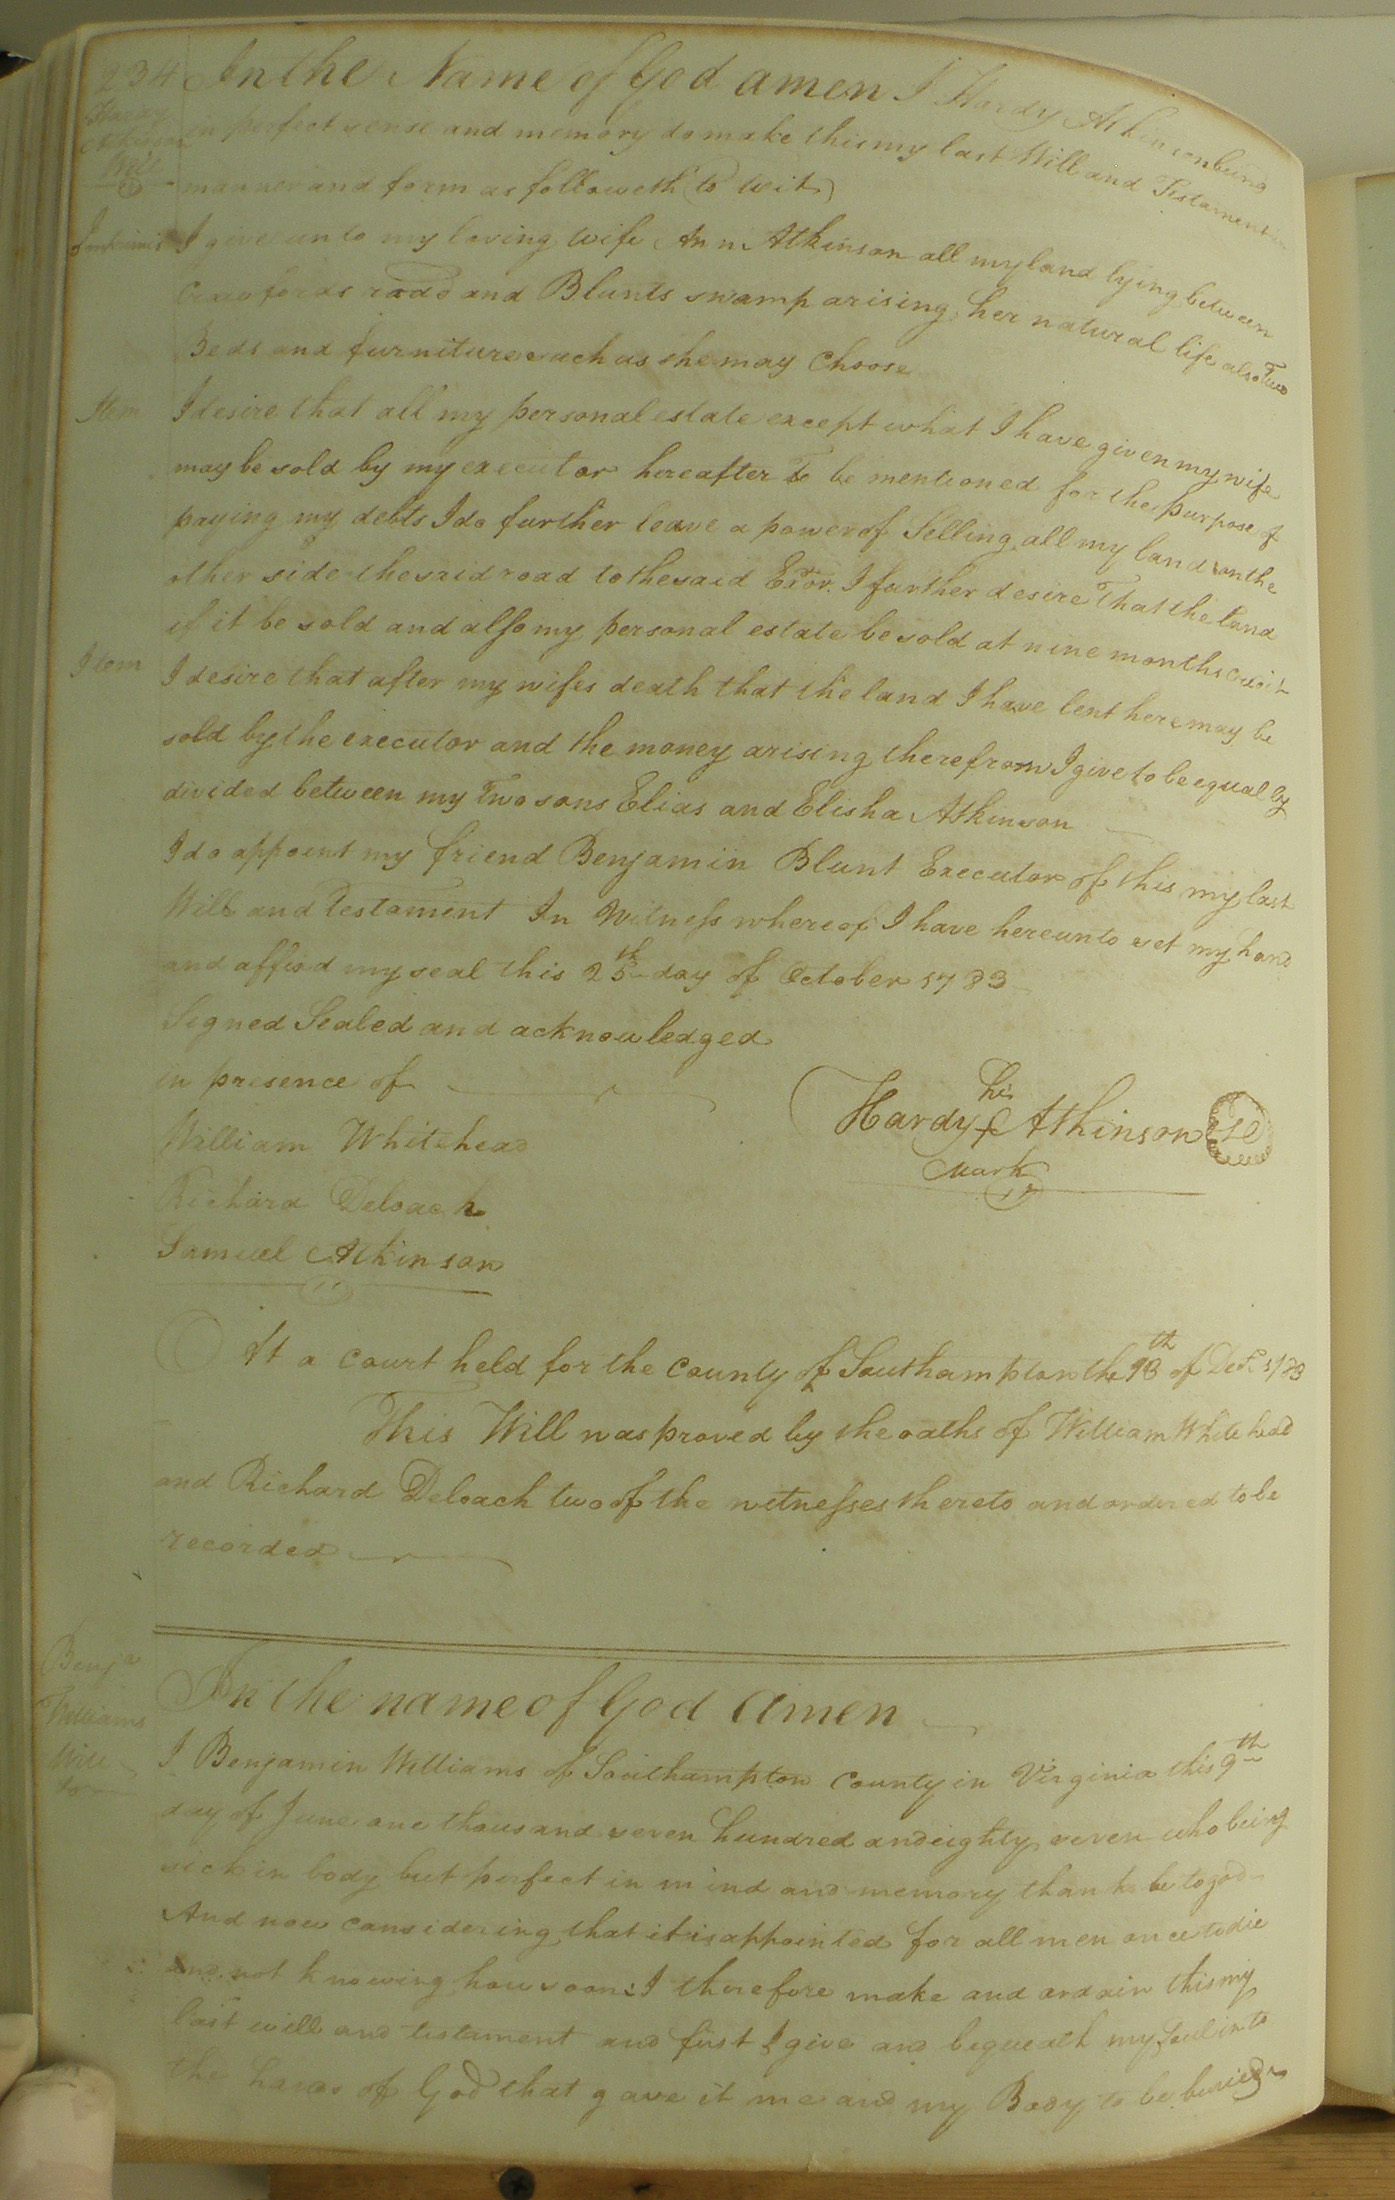 234 In the Name of God amen I Hardy Atkinson being
Hardy Atkinson Will
in perfect sense and memory do make this my last Will and Testament in
manner and form as followeth (to wit)
Imprimis I give unto my loving wife Ann Atkinson all my land lying between
Crawfords road and Blunts swamp arising her natural life also Two
Beds and furniture such as she may Choose
Item I desire that all my personal estate except what I have given my wife
may be sold by my executor hereafter To be mentioned for the purpose of
paying my debts I do further leave a power of Selling all my land on the
other side the said road to the said Exor. I further desire That the land
if it be sold and also my personal estate be sold at nine months credit
Item I desire that after my wifes death that the land I have lent here may be
sold by the executor and the money arising therefrom I give to be equal by
divided between my Two sons Elias and Elisha Atkinson
I do appoint my friend Benjamin Blunt Executor of this my last
Will and Testament In Witness whereof I have hereunto set my hand
and affixd my seal this 25th day of October 1783
Signed Sealed and acknowledged
in presence of
his
Hardy + Atkinson
Mark
William Whitehead
Richard Deloach
Samuel Atkinson
At a Court held for the County of Southampton the th of Decr. 1783
This Will was proved by the oaths of William Whitehead
and Richard Deloach two of the witnesses thereto and ordered to be
recorded
Benja
Williams
Will
In the name of God Amen
I Benjamin Williams of Southampton County in Virginia this 9th
day of June one thousand seven hundred and eighty seven who being
sick in body but perfect in mind and memory thanks be to god
And now considering that it is appointed for all men once to die
and not knowing how soon: I therefore make and ordain this my
last will and testament and first I give and bequeath my Soul into
the hands of God that gave it me and my Body to be buried